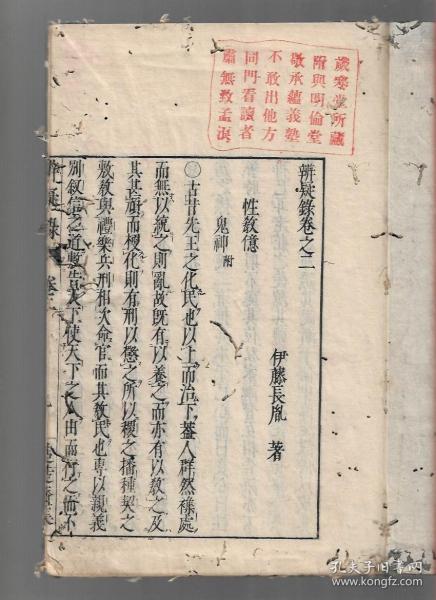 歲寒堂所藏
附與明倫堂
敬承蘊義塾
不敢出他方
同門看讀者
肅無致孟浪
辨疑錄卷之二
伊藤長胤 著
性教億
鬼神附
古昔先王之化民也以上而治下蓋人群然襍處
而無以統之則亂故既有以養之而亦有以教之及
其甚頑而梗化則有刑以懲之所以稷之播種契之
敷教與禮樂兵刑相次命官而其教民也專以親義
別叙信之道 天下使天下之人由而行之
孔夫子旧书网
www.kongfz.com